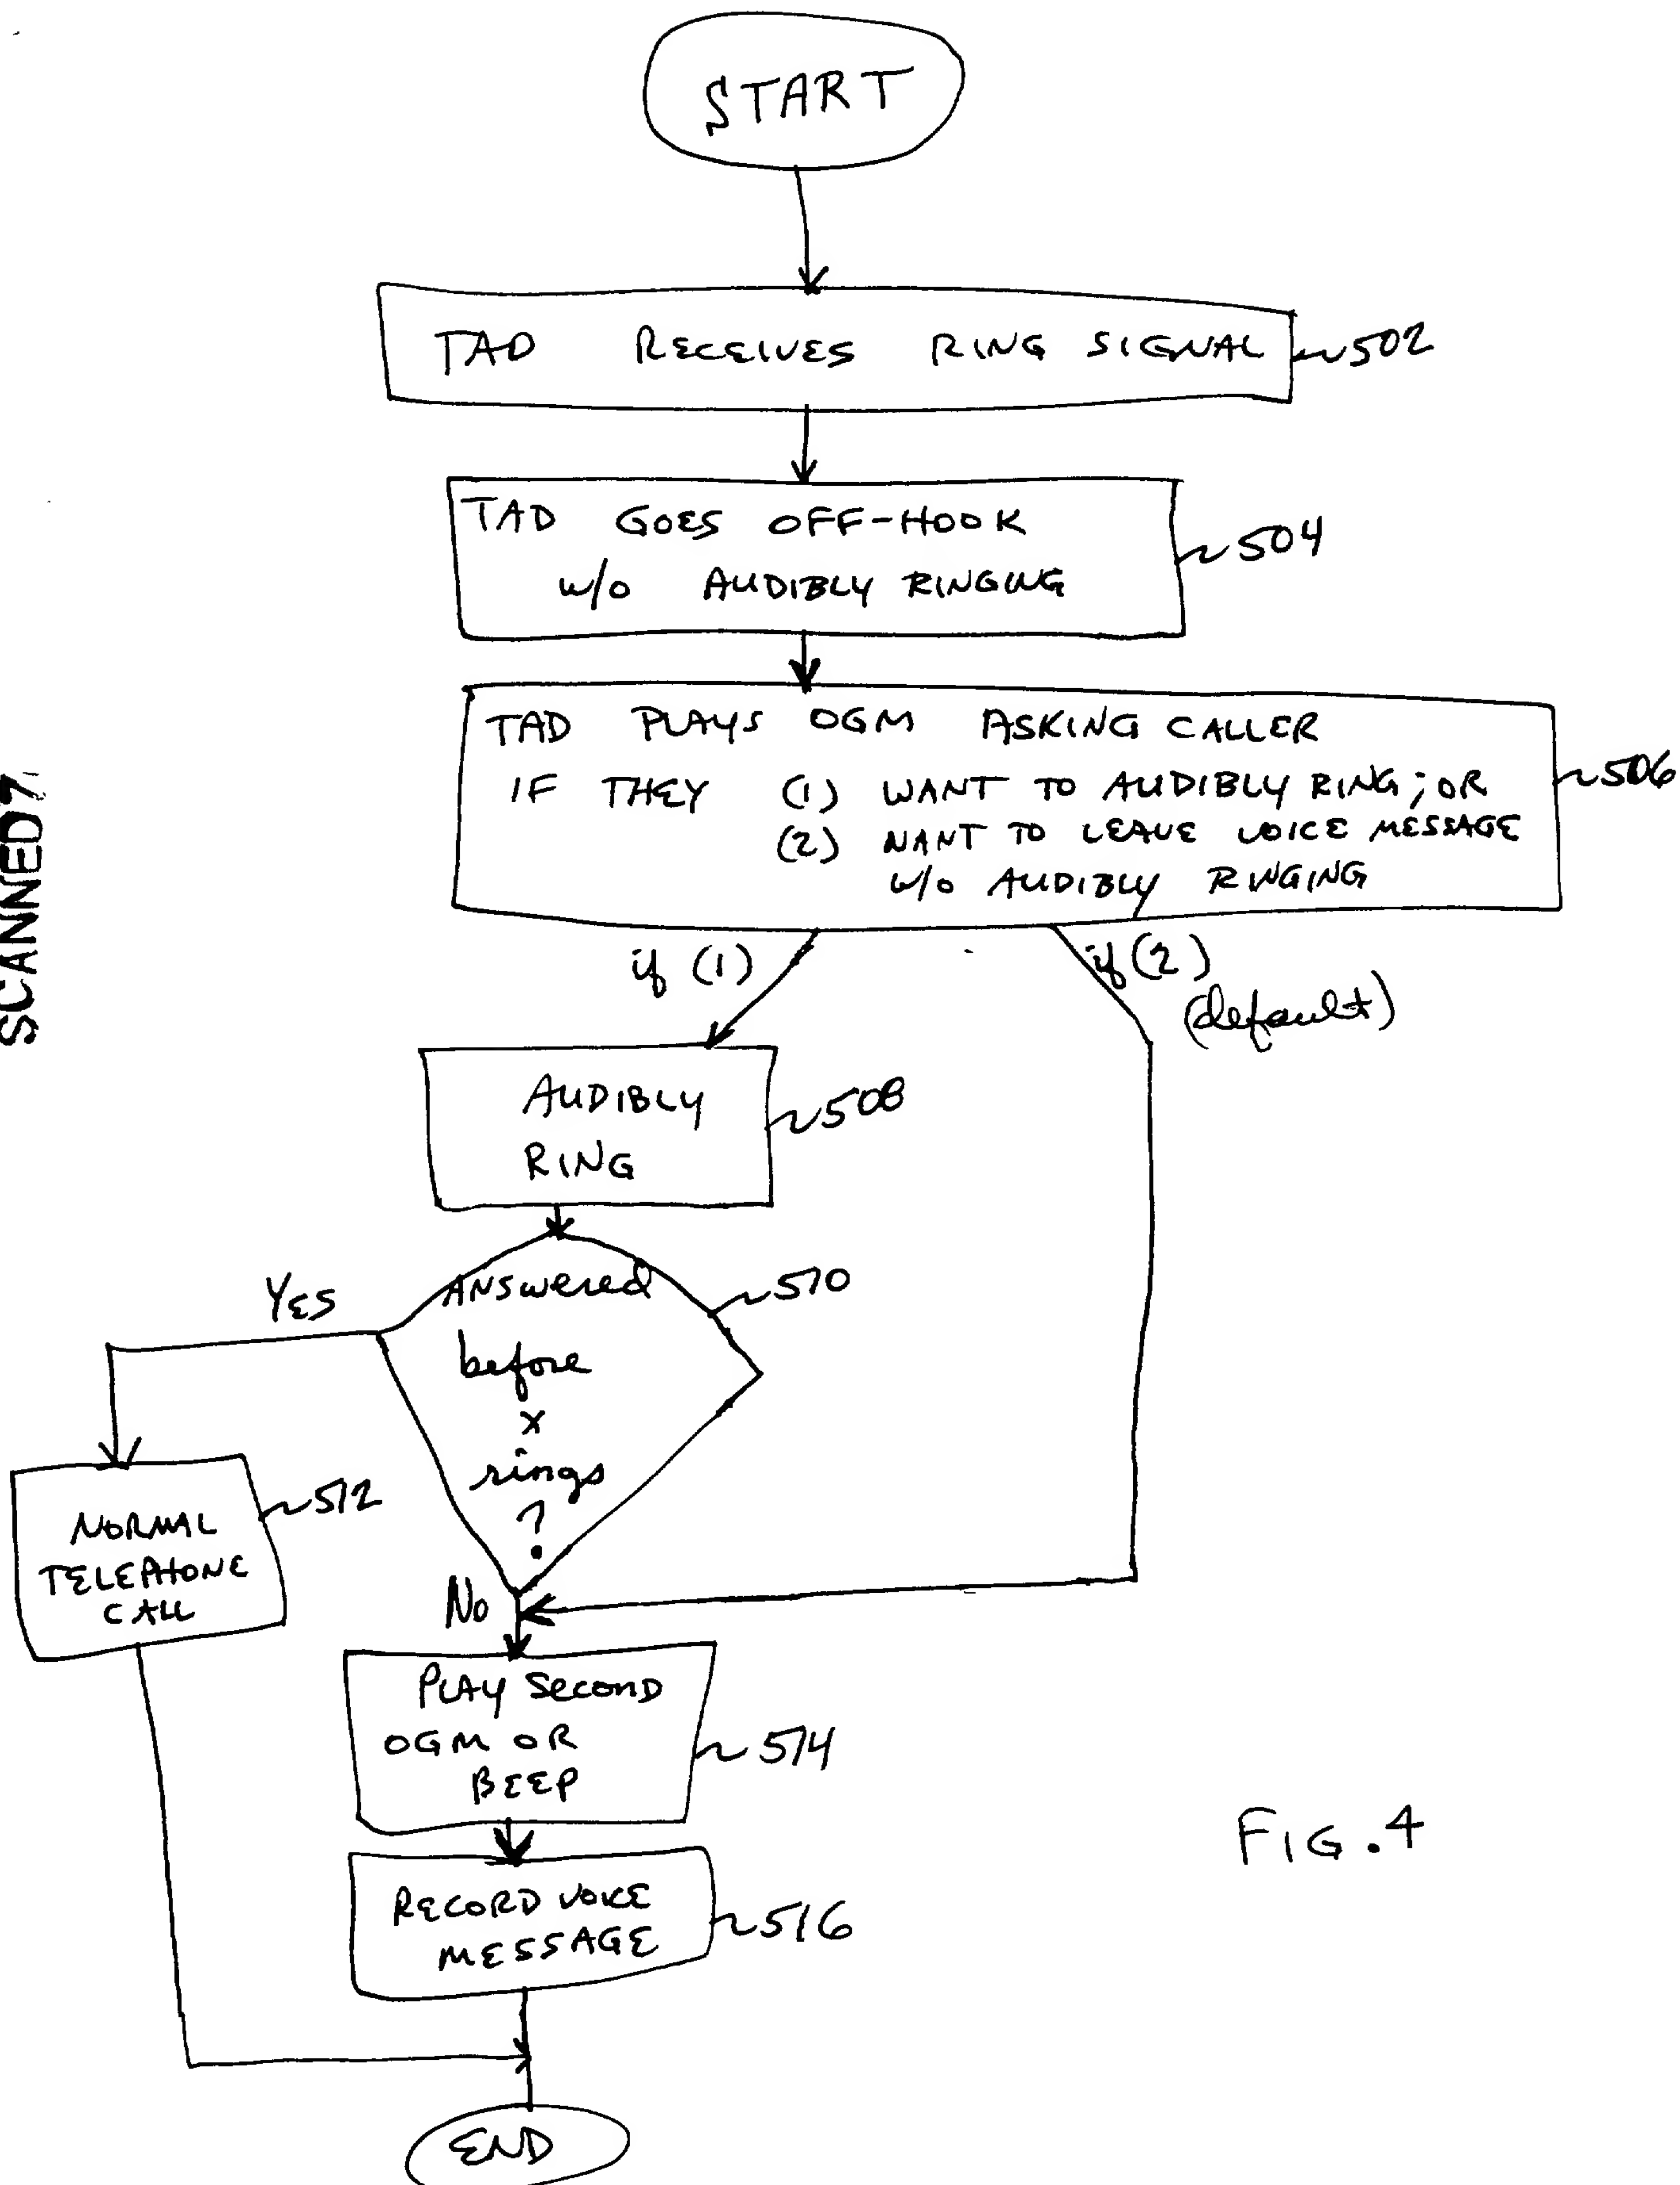 START
TAD RECEIVES RING SIGNAL
502
TAD GOES OFF-HOOK
w/o AUDIBLY RINGING
504
TAD PLAYS OGM ASKING CALLER
IF THEY (1) WANT TO AUDIBLY RING; OR
(2) WANT TO LEAVE VOICE MESSAGE
w/o AUDIBLY RINGING
506
SCANNED 7
if (1)
if (2)
(default)
AUDIBLY
RING
508
YES
ANSWERED
before
x
rings
?
510
NORMAL
TELEPHONE
CALL
512
No
PLAY SECOND
OGM OR
BEEP
514
RECORD VOICE
MESSAGE
516
FIG. 4
END